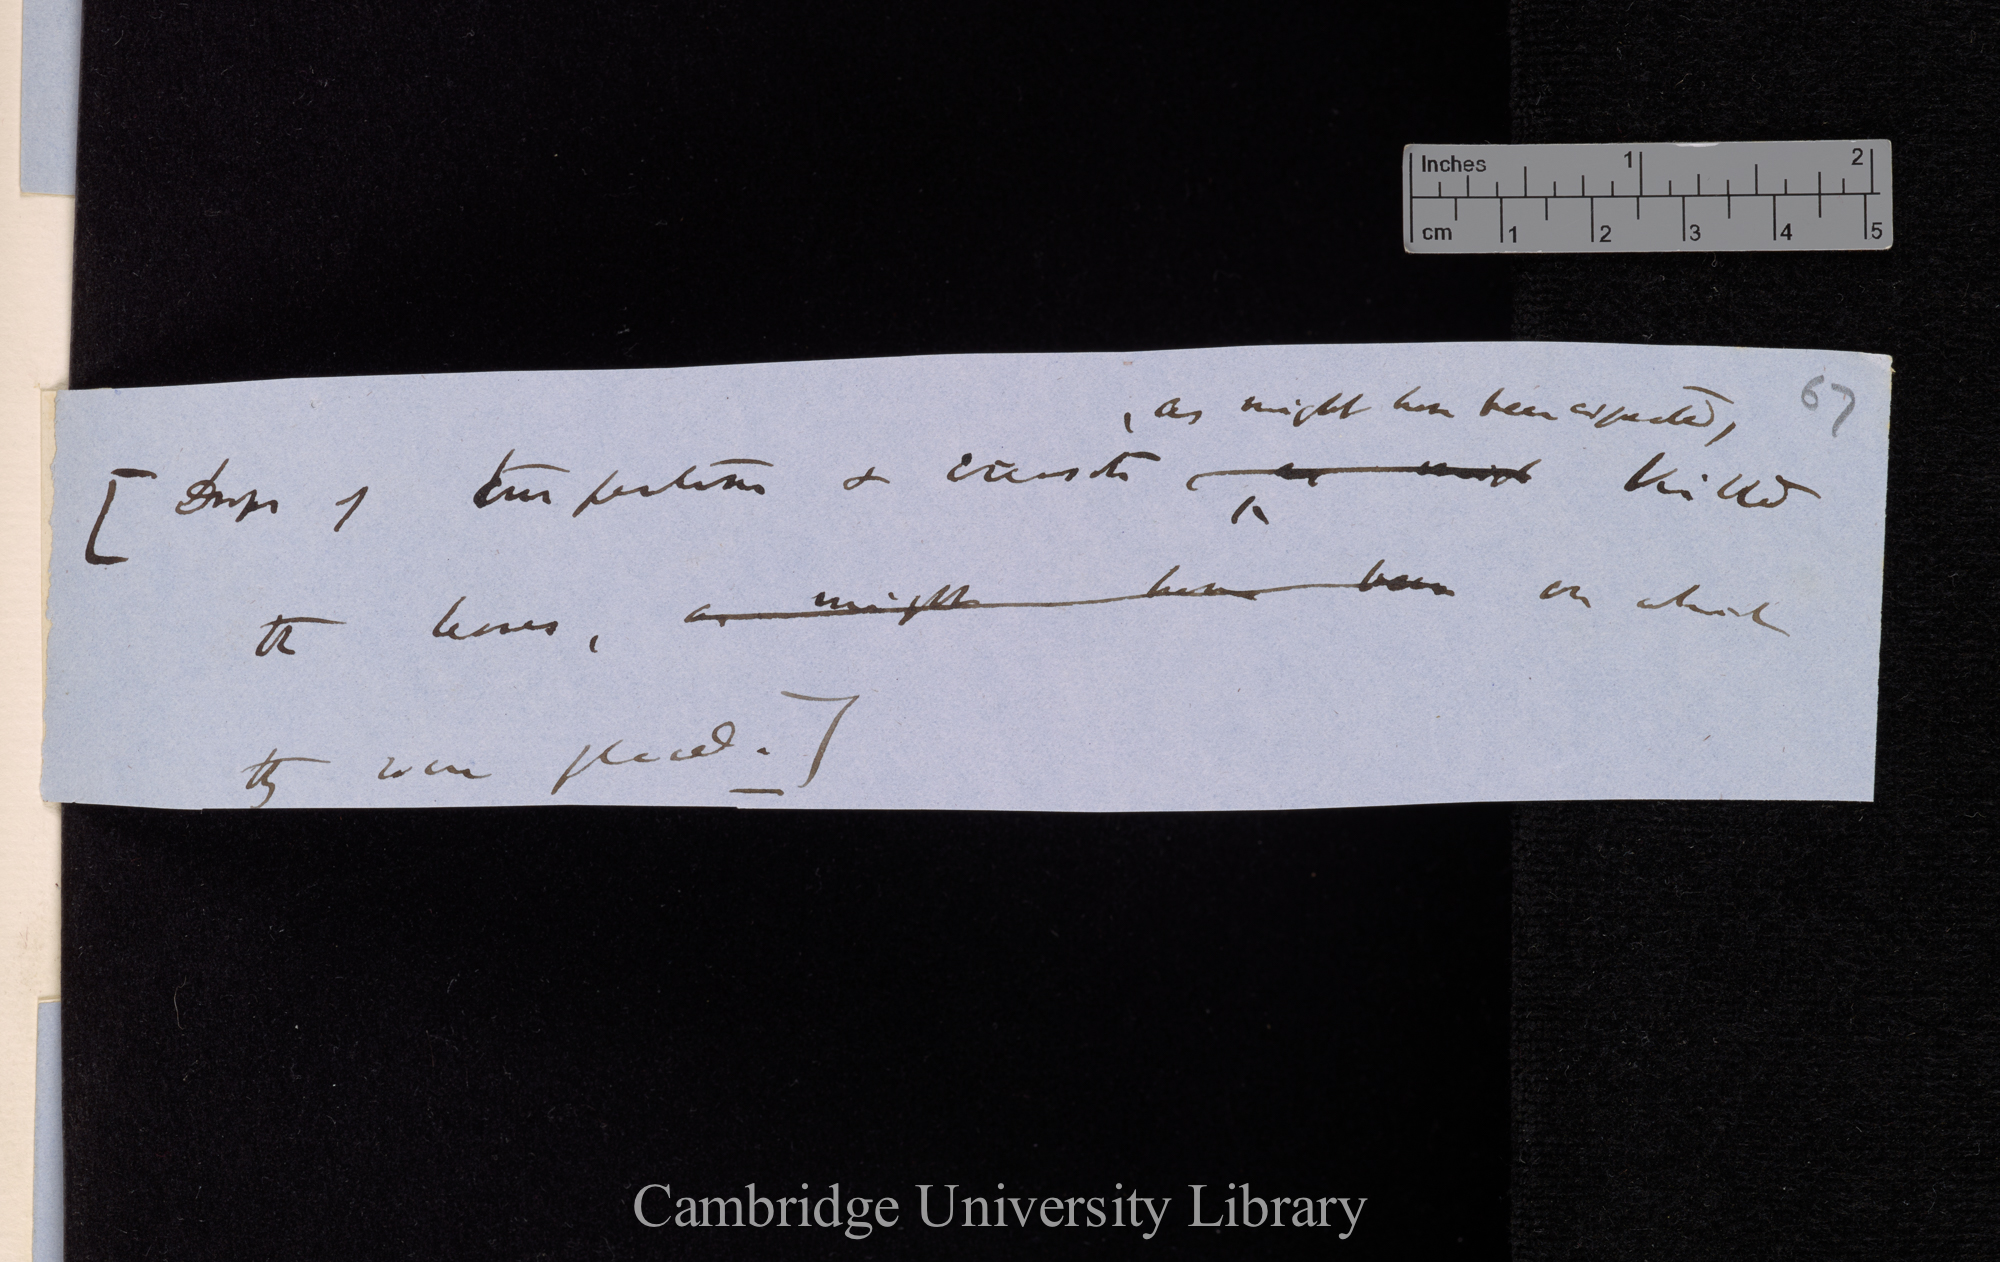 Inches 1 2
cm 1 2 3 4 5
67
, as might have been expected,
[Drops of turpentine & creosote as might killed
the leaves, as might have been on which
they were placed.]
Cambridge University Library